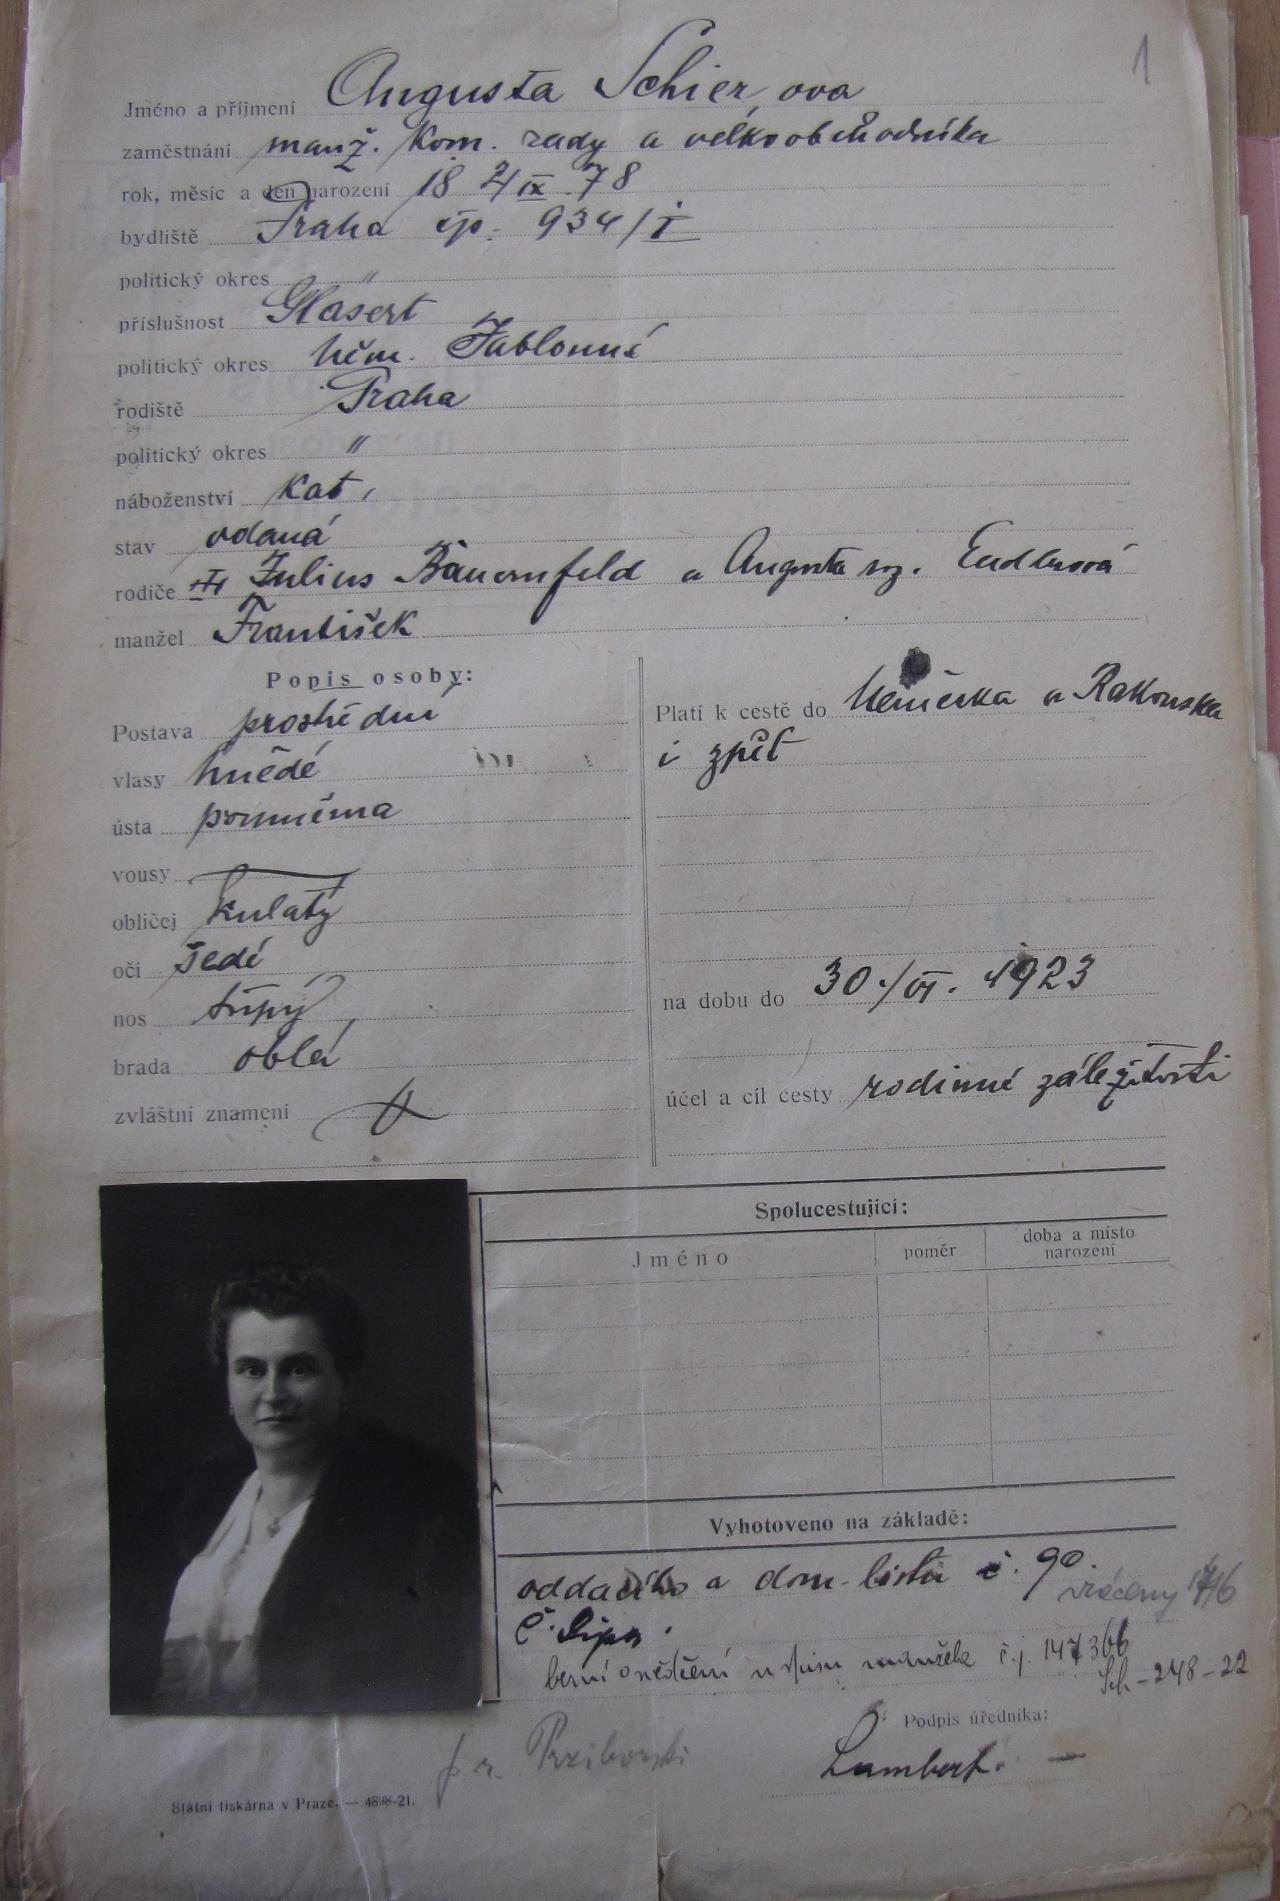 1
Jméno a příjmení Augusta Schier, ova
zaměstnání manž. kom. rady a velkoobchodníka
rok, měsíc a den narození 18 2/IX 78
bydliště Praha čp. 934/I
politický okres "
příslušnost Glasert
politický okres Něm. Jablonné
rodiště Praha
politický okres "
náboženství kat.
stav vdaná
rodiče Julius Bauernfeld a Augusta roz.
manžel František
Popis osoby:
Postava prostřední
vlasy hnědé
ústa poměrná
vousy —
obličej kulatý
oči šedé
nos tupý
brada oblá
zvláštní znamení
Platí k cestě do Německa a Rakouska
i zpět
na dobu do 30./VI. 1923
účel a cíl cesty rodinné záležitosti
Spolucestující:
Jméno poměr doba a místo narození
Vyhotoveno na základě:
oddacího a dom. listu č. 90. vráceny
Č. Lípa.
berní osvědčení u spisu manžela č.j. 147366
Sch-248-22
Podpis úředníka:
Lambert. —
Státní tiskárna v Praze. — 4898-21.